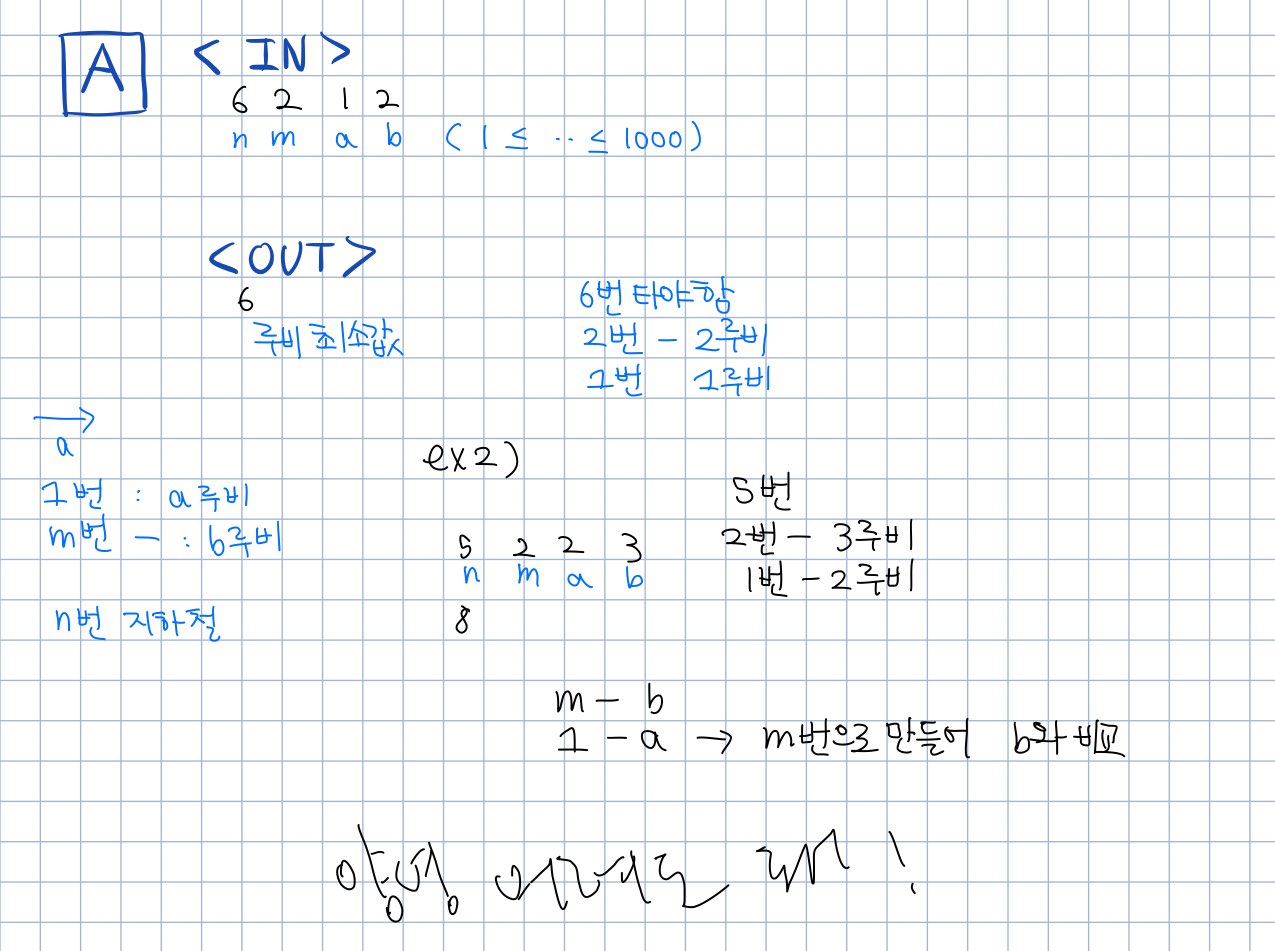 A
< IN >
6 2 1 2
n m a b ( 1 ≤ ·· ≤ 1000 )
<OUT>
6
루비 최소값
6번 타야함
2번 - 2루비
1번 1루비
→
a
1번 : a루비
m번 - : b루비
n번 지하철
ex2)
5 2 2 3
n m a b
8
5번
2번 - 3루비
1번 - 2루비
m - b
1 - a → m번으로 만들어 b와 비교